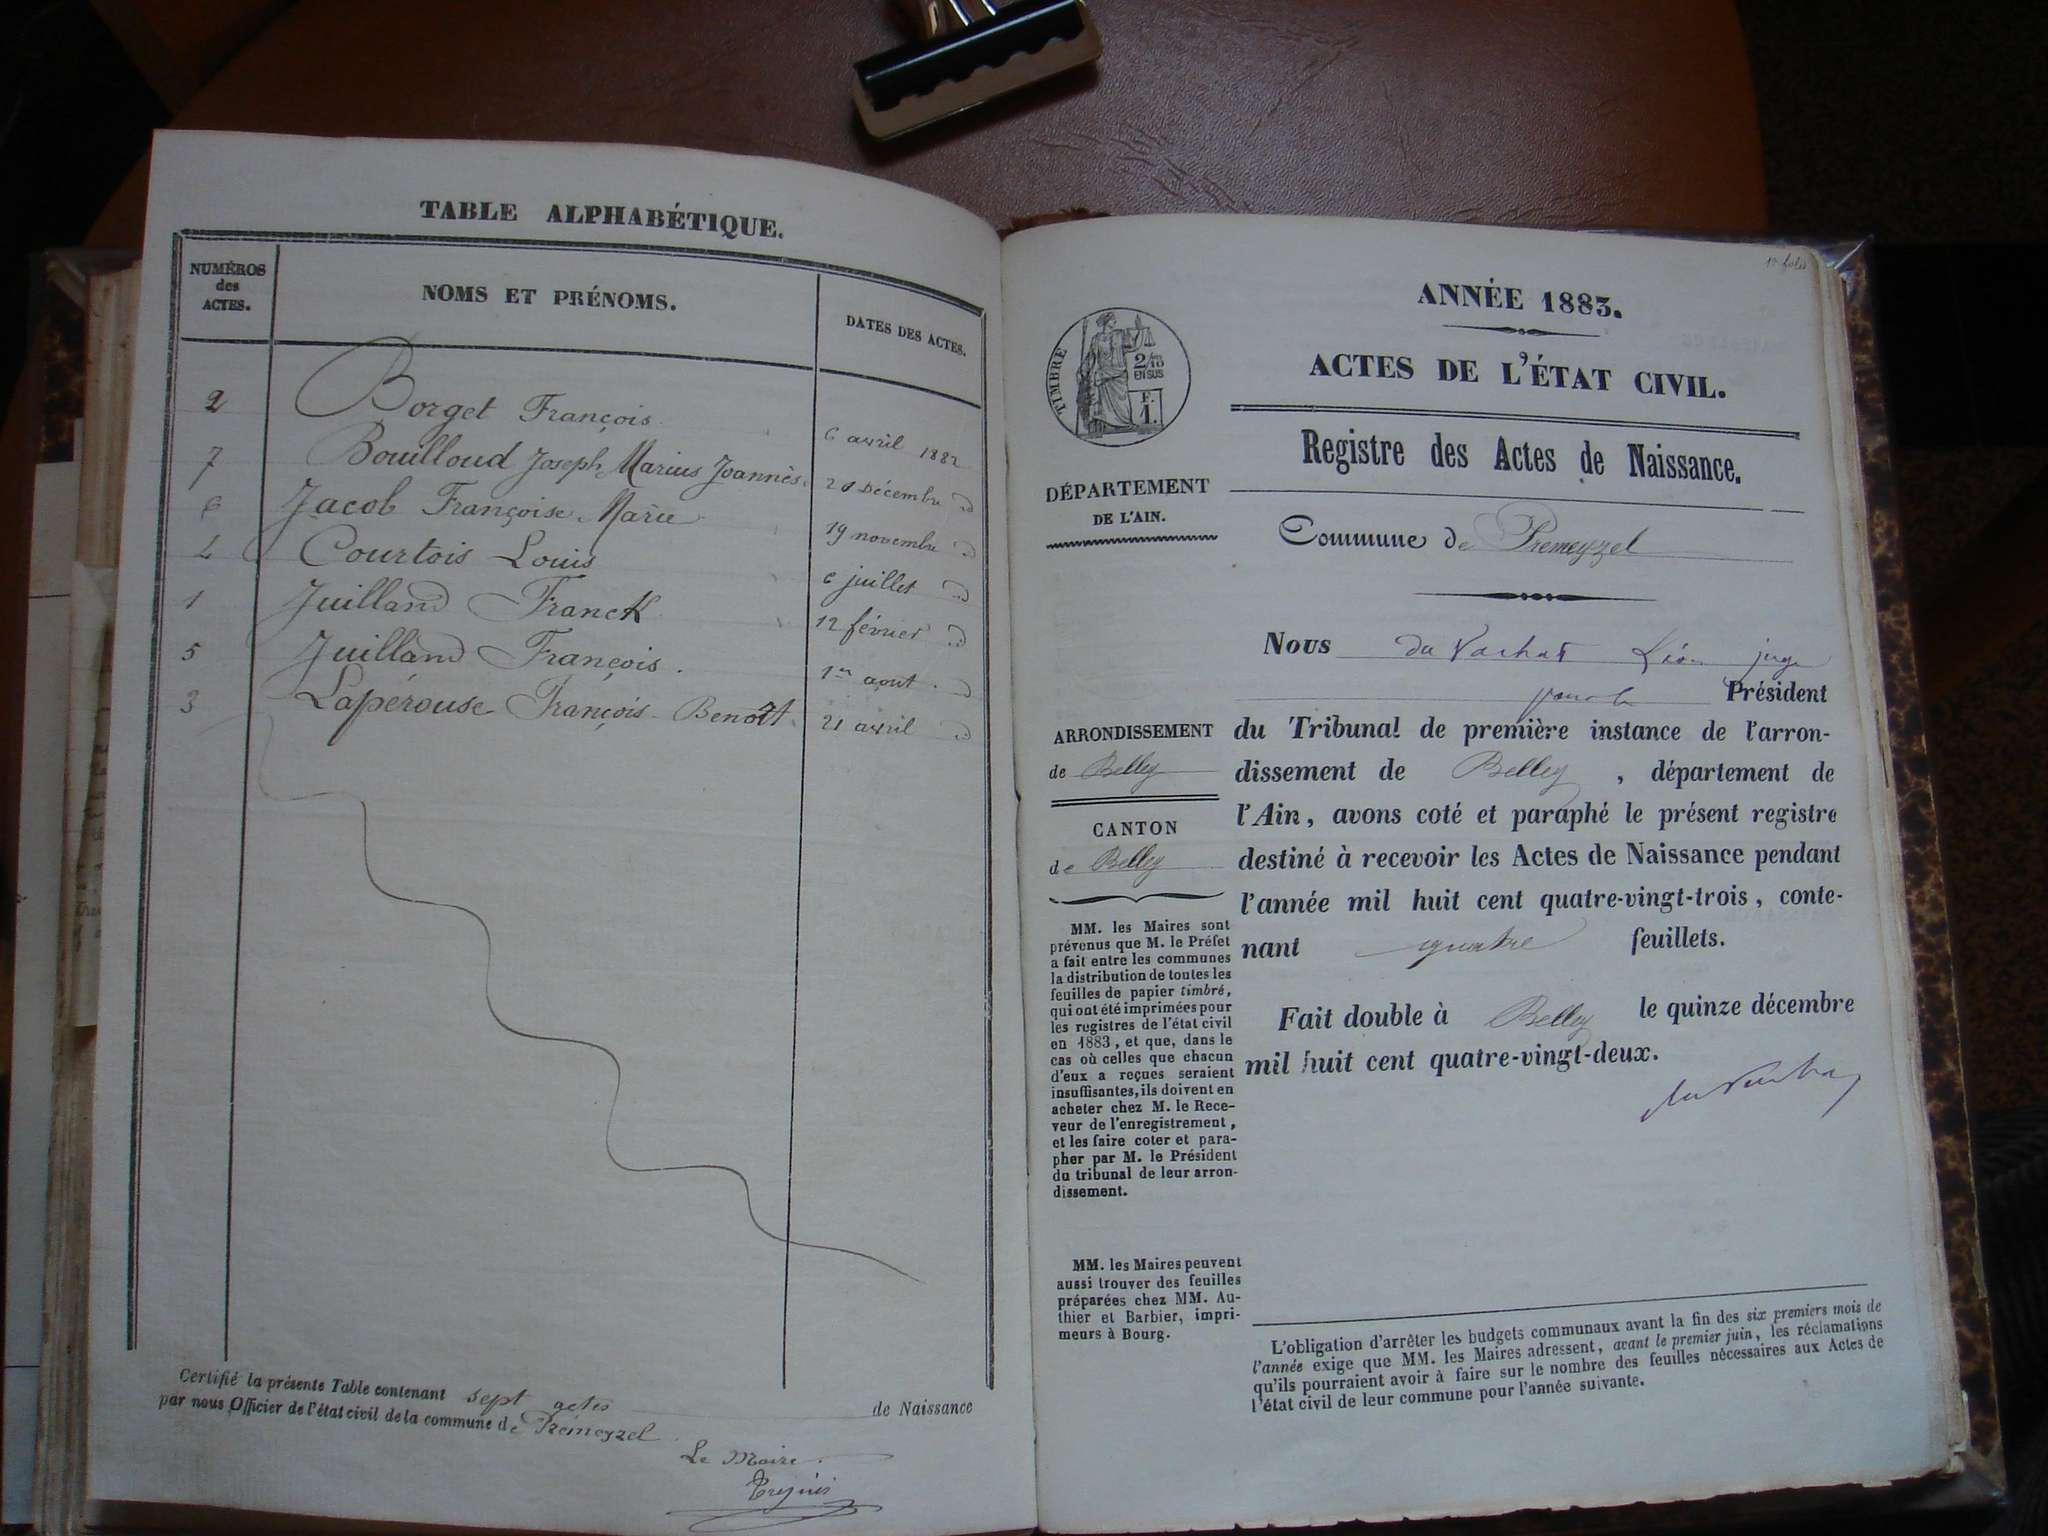 TABLE ALPHABÉTIQUE.
NUMÉROS
des
ACTES.
NOMS ET PRÉNOMS.
DATES DES ACTES.
2 Borget François 6 avril 1882
7 Bouilloud Joseph Marius Joannès 28 Décembre d
6 Jacob Françoise Marie 19 novembre d
4 Courtois Louis 6 juillet d
1 Juilland Franck 12 février d
5 Juilland François. 1er aout d
3 Lapérouse François Benoît 21 avril d
Certifié la présente Table contenant sept actes de Naissance
par nous Officier de l'état civil de la commune de Prémeyzel
Le Maire
1er folio
TIMBRE
2/10
EN SUS
F.
1.
ANNÉE 1883.
ACTES DE L'ÉTAT CIVIL.
Registre des Actes de Naissance.
DÉPARTEMENT
DE L'AIN.
Commune de Premeyzel
Nous du Vachat Léon juge
pour le Président
ARRONDISSEMENT
de Belley
CANTON
de Belley
du Tribunal de première instance de l'arron-
dissement de Belley, département de
l'Ain, avons coté et paraphé le présent registre
destiné à recevoir les Actes de Naissance pendant
l'année mil huit cent quatre-vingt-trois, conte-
nant quatre feuillets.
Fait double à Belley le quinze décembre
mil huit cent quatre-vingt-deux.
du Vachat
MM. les Maires sont
prévenus que M. le Préfet
a fait entre les communes
la distribution de toutes les
feuilles de papier timbré,
qui ont été imprimées pour
les registres de l'état civil
en 1883, et que, dans le
cas où celles que chacun
d'eux a reçues seraient
insuffisantes, ils doivent en
acheter chez M. le Rece-
veur de l'enregistrement,
et les faire coter et para-
pher par M. le Président
du tribunal de leur arron-
dissement.
MM. les Maires peuvent
aussi trouver des feuilles
préparées chez MM. Au-
thier et Barbier, impri-
meurs à Bourg.
L'obligation d'arrêter les budgets communaux avant la fin des six premiers mois de
l'année exige que MM. les Maires adressent, avant le premier juin, les réclamations
qu'ils pourraient avoir à faire sur le nombre des feuilles nécessaires aux Actes de
l'état civil de leur commune pour l'année suivante.